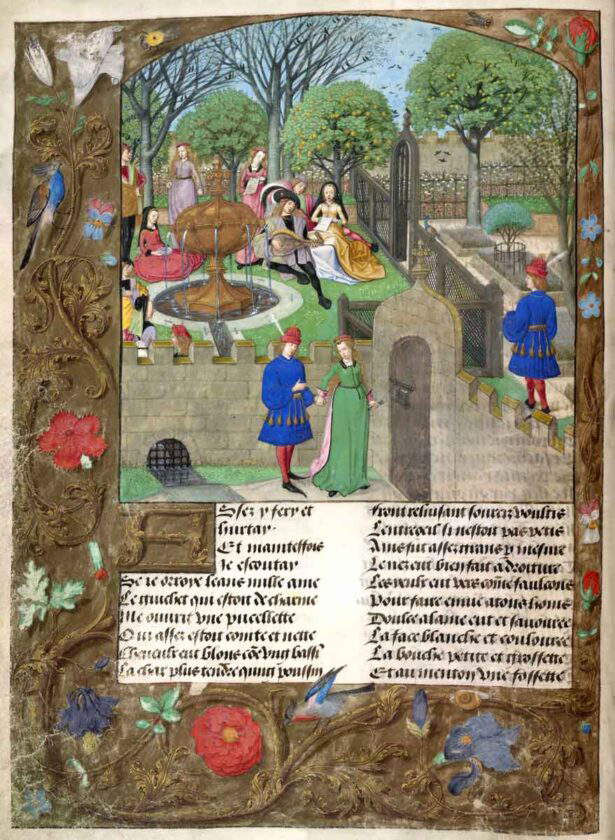 Assez y fery et
hurtay
Et maintesfois
Je escoutay
Se ie orroye leans nulle ame
Le guichet qui estoit de charme
Me ouurit vne pucellette
Qui assez estoit cointe et nette
Cheueulx eut blons cõe vng bassĩ
La char plus tendre qung poussin
Front reluisant sourcız voultis
Lentreoeil si nestoit pas petis
Ains fut assez grans p mesure
Le nez eut bien fait a droiture
Les yeulx eut vers cõme faulcons
Pour faire enuie a tous homs
Doulce alaine eut et sauouree
La face blanche et coulouree
La bouche petite et grossette
Et au menton vne fossette